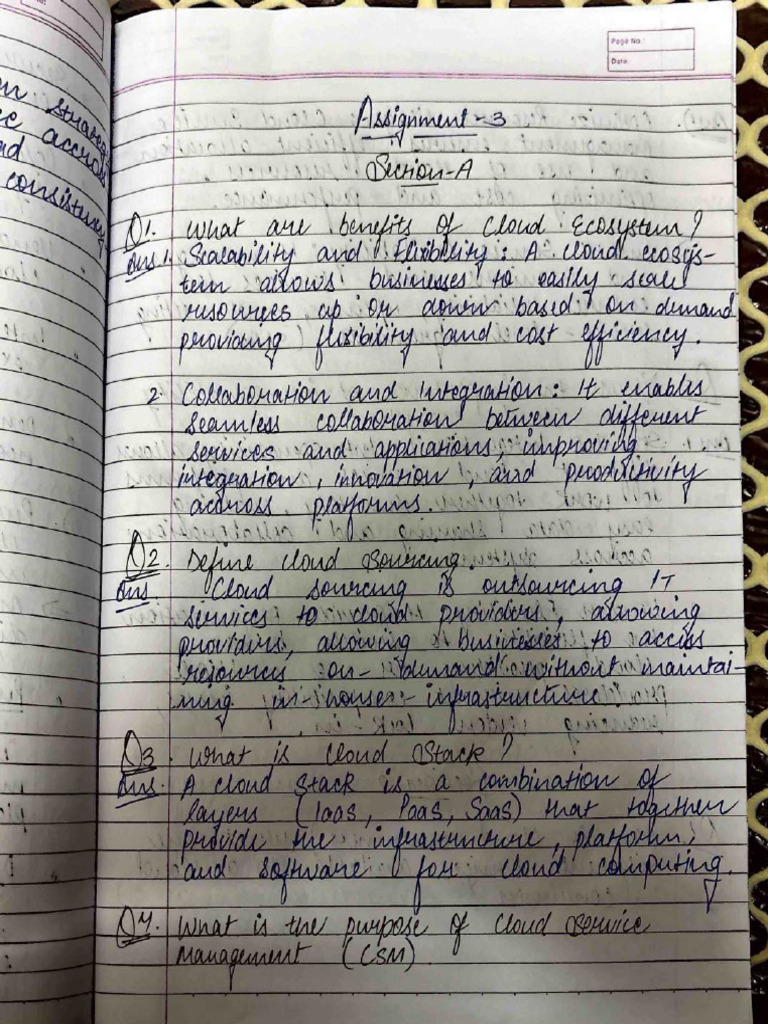 Page No.:
Date:
on strateg
ce accross
nd
consistency
Assignment-3
Section-A
Q1. What are benefits of Cloud Ecosystem?
Ans 1. Scalability and Flixibility: A cloud ecosys-
tem allows businesses to easily scale
resources up or down based on demand
providing flexibility and cost efficiency.
2. Collaboration and Integration: It enables
seamless collaboration between different
services and applications, improving
integration, innovation, and productivity
accross platforms.
Q2. Define Cloud Sourcing.
Ans. Cloud sourcing is outsourcing IT
services to cloud providers, allowing
providers, allowing businesses to access
resources on-demand without maintai-
ning in-house-infrastructure
Q3. What is Cloud Stack?
Ans. A cloud stack is a combination of
layers (IaaS, PaaS, SaaS) that together
provide the infrastructure, platform,
and software for cloud computing.
Q4. What is the purpose of Cloud Service
Management (CSM)